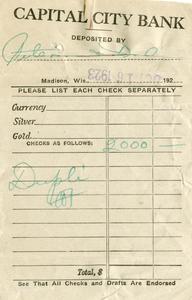 CAPITAL CITY BANK
DEPOSITED BY
Madison, Wis. OCT 16 1923 192
PLEASE LIST EACH CHECK SEPARATELY
Currency
Silver
Gold
CHECKS AS FOLLOWS: 2000 —
Dupli
Total, $
See That All Checks and Drafts Are Endorsed